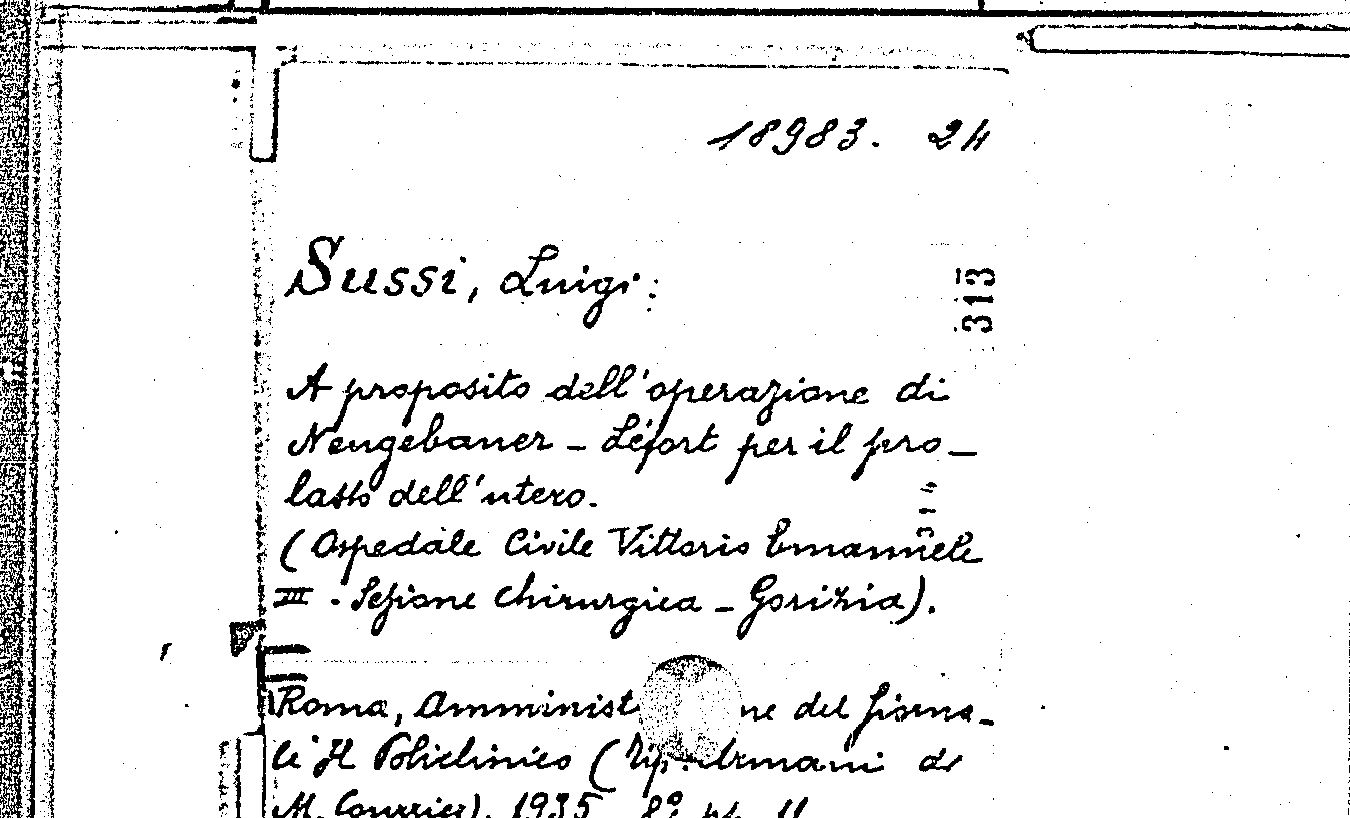 18983. 24
Sussi, Luigi:
313
A proposito dell'operazione di
Neugebauer - Léfort per il pro-
lasso dell'utero.
314
(Ospedale Civile Vittorio Emanuele
III. Sezione chirurgica - Gorizia).
Roma, Amminist ne del giorna-
le Il Policlinico (Tip. Armani di
M. Courrier). 1935 8º pp. 11